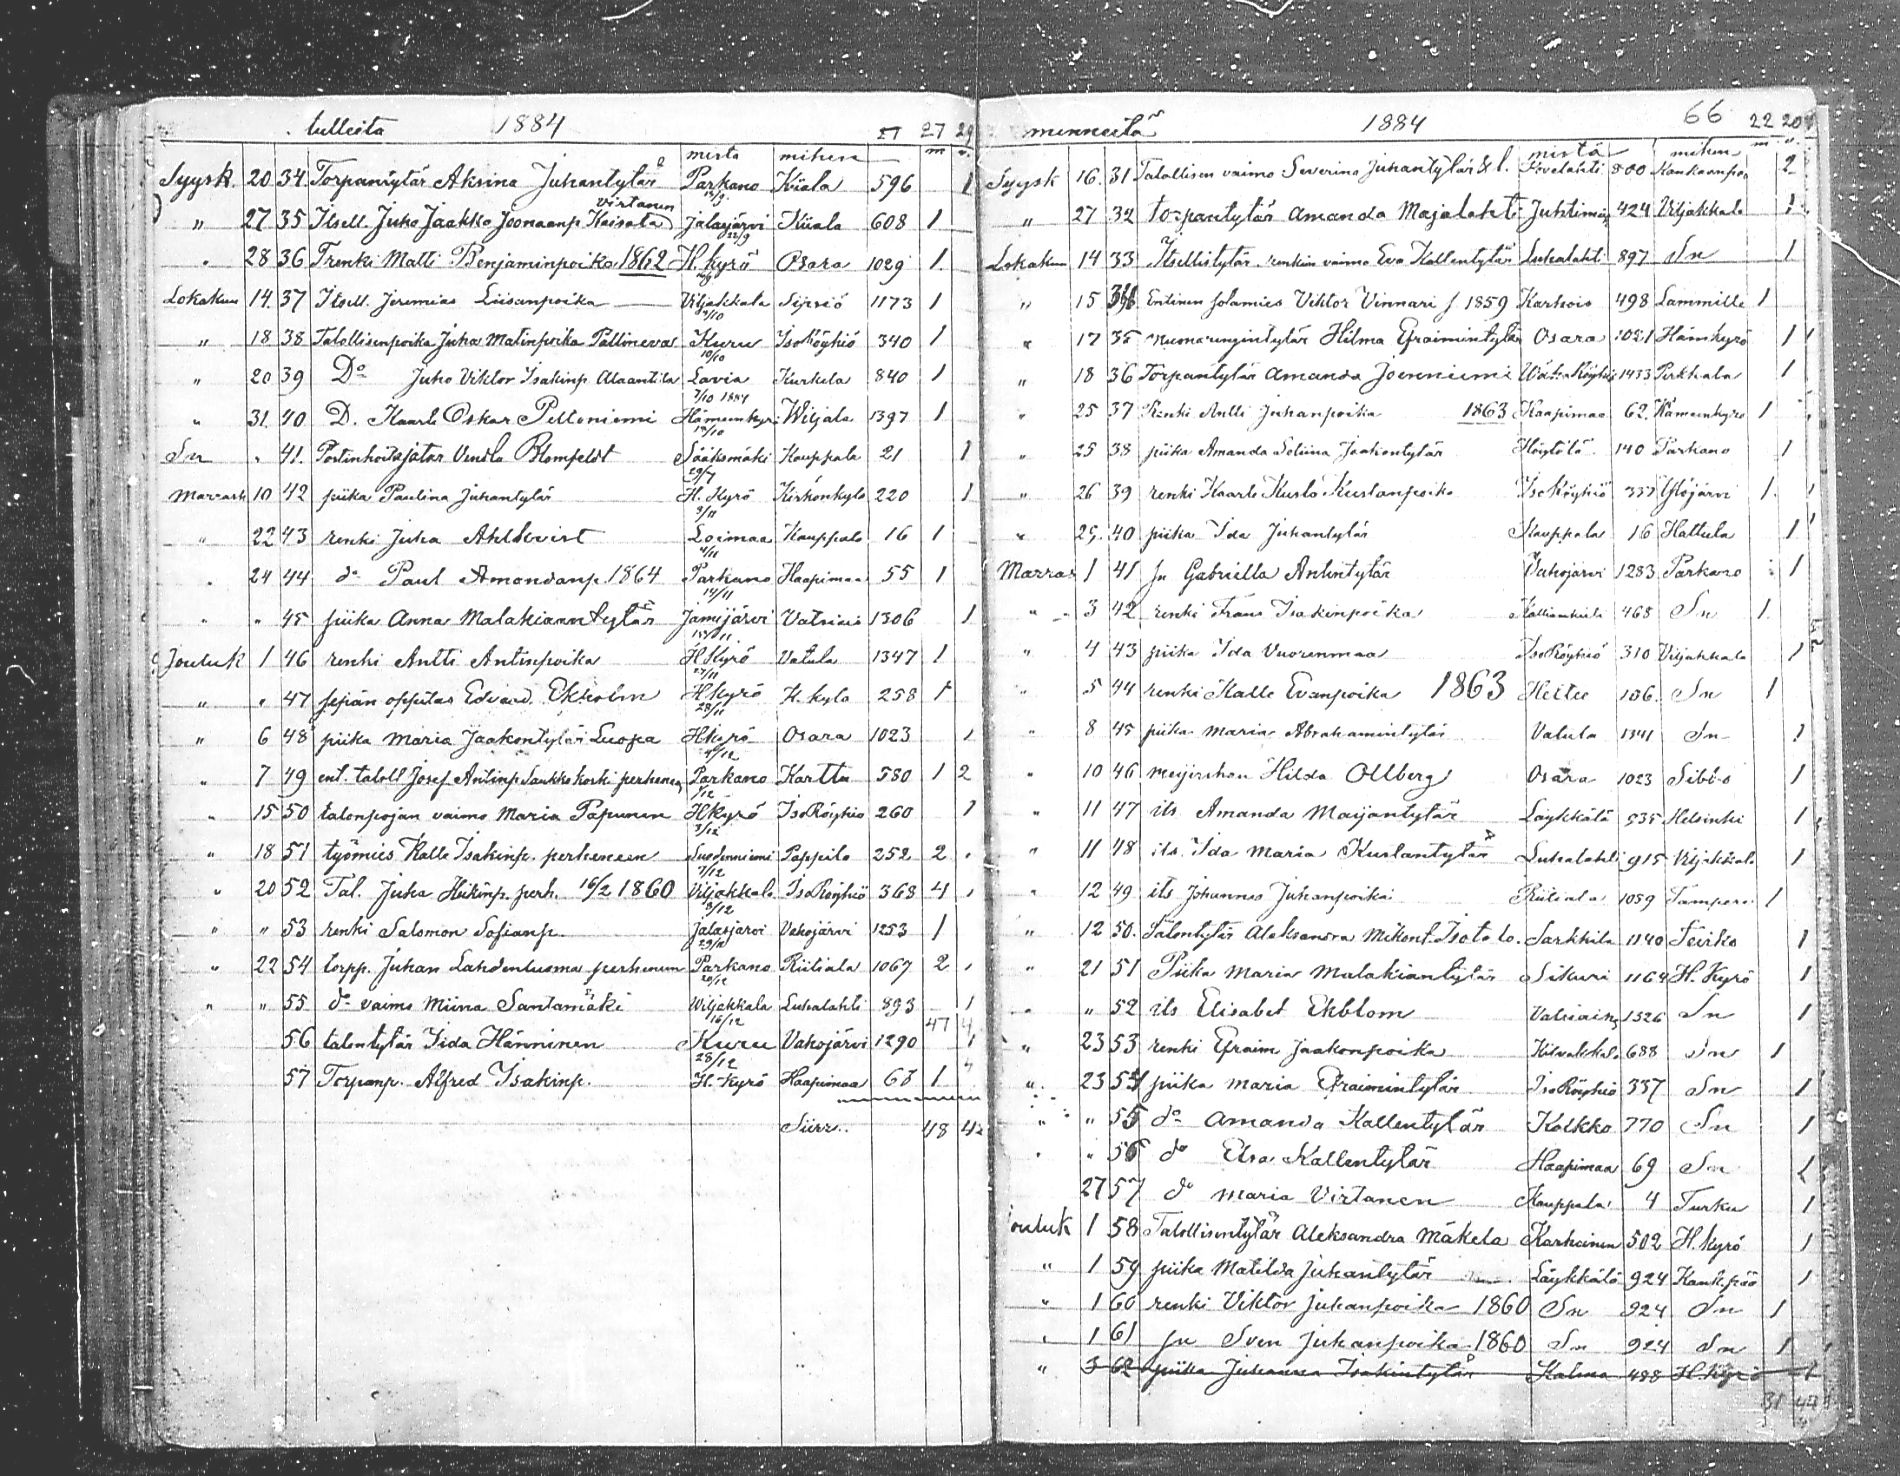 tulleita 1884 27 27 29
mista mihin m v.
Syysk. 20 34 Torpantytär Aksina Juhantytär Parkano Kiiala 596 1
" 27 35 Itsell. Juho Jaakko Joonaanp Virtanen Jalasjärvi 22/9 Kiiala 608 1
28 36 Trenki Matti Benjaminpoika 1862 H. kyrö Osara 1029 1
Lokakuu 14. 37 Itsell. Jeremias Liisanpoika Viljakkala /10 Sipsiö 1173 1
" 18 38 Talollisenpoika Juha Matinpoika Pällinevas Kuru 10/10 IsoRöyhiö 340 1
" 20 39 Do Juho Viktor Isakinp Alaantila Lavia 7/10 1884 Kurkela 840 1
" 31. 40 D. Kaarle Oskar Peltoniemi Hämeenkyrö /10 Wiljala 1397 1
Sn " 41. Postinhoitajatar Vendla Blomfeldt Sääksmäki 29/7 Kauppala 21 1
Marrask 10 42 piika Paulina Juhantytär H. Kyrö 3/11 Kirkonkylä 220 1
" 22 43 renki Juha Ahlkvist Loimaa /11 Kauppala 16 1
" 24 44 do Paul Amondanp. 1864 Parkano 14/11 Haapimaa 55 1
" " 45 piika Anna Malakiaantytär Jämijärvi /11 Vatsiais 1306 1
Jouluk 1 46 renki Antti Antinpoika H Kyrö 27/11 Vatula 1347 1
" " 47 sepän oppilas Edvard Ekholm H kyrö 28/11 K. kylä 258 1
" 6 48 piika Maria Jaakontytär Luopa Hkyrö /12 Osara 1023 1
" 7 49 ent. taloll Josef Antinp Saukkokoski perheneen Parkano /12 Kartti 580 1 2
" 15 50 talonpojan vaimo Maria Papunen Hkyrö 3/12 IsoRöyhiö 260 1
" 18 51 työmies Kalle Isakinp. perheneen Suodenniemi 7/12 Pappila 252 2 1
" 20 52 Tal. Juha Heikinp. perh. 16/2 1860 Viljakkala 8/12 IsoRöyhiö 368 4 1
" " 53 renki Salomon Sofianp. Jalasjärvi 29/11 Vahojärvi 1253 1
" 22 54 torpp. Juhan Lahdenluoma perheneen Parkano 20/12 Riitiala 1067 2 1
" " 55 do vaimo Miina Santamäki Wiljakkala 16/12 Luhalahti 893 1
47 4
56 talontytär Iida Hänninen Kuru 28/12 Vahojärvi 1290 1
57 Torpanp. Alfred Isakinp. H. Kyrö Haapimaa 68 1
Siirr. 48 42
menneitä 1884 66 22 20
mistä mihin m v.
Syysk 16. 31 Talollisen vaimo Severina Juhantytär & l. Kovelahti 800 Kankaanpää 2
" 27 32 torpantytär Amanda Majalahti Juhtimäki 424 Viljakkala 1
Lokakuu 14 33 Itsellistytär, renkin vaimo Eva Kallentytär Luhalahti 897 Sn 1
" 15 34 Entinen solamies Viktor Vinnari s 1859 Karhois 498 Lammille 1
" 17 35 Muonarengintytär Hilma Efraimintytär Osara 1021 Hämkyrö 1
" 18 36 Torpantytär Amanda Joenniemi VähäRöyhiö 1433 Pirkkala 1
" 25 37 Renki Antti Juhanpoika 1863 Haapimaa 62. Hämeenkyrö 1
" 25 38 piika Amanda Seliina Jaakontytär Höytölä 140 Parkano 1
" 26 39 renki Kaarle Kusta Kustanpoika IsoRöyhiö 337 Ylöjärvi 1
" 29. 40 piika Ida Juhantytär Kauppala 16 Hattula 1
Marras 1 41 Sn Gabriella Antintytär Vahojärvi 1283 Parkano 1
" 3 42 renki Frans Isakinpoika 468 Sn 1
" 4 43 piika Ida Vuorenmaa IsoRöyhiö 310 Viljakkala 1
" 5 44 renki Kalle Evanpoika 1863 Heitto 106 Sn 1
" 8 45 piika Maria Abrahamintytär Vatula 1341 Sn 1
" 10 46 meijerska Hilda Ollberg Osara 1023 Sibbo 1
" 11 47 its Amanda Maijantytär Läykkälä 935 Helsinki 1
" 11 48 its. Ida Maria Kustantytär Luhalahti 915 Viljakkala 1
" 12 49 its Johannes Juhanpoika Riitiala 1059 Tampere 1
" 12 50. Talontytär Aleksandra Mikont. Isotalo. Sarkkila 1140 Teisko 1
" 21 51 Piika Maria Malakiantytär Sikuri 1164 H. Kyrö 1
" " 52 its Elisabet Ekblom Vatsiais 1326 Sn 1
" 23 53 renki Efraim Jaakonpoika Kilvakkala 688 Sn 1
" 23 54 piika Maria Efraimintytär IsoRöyhiö 337 Sn 1
" " 55 do Amanda Kallentytär Kolkko 770 Sn 1
" " 56 do Elsa Kallentytär Haapimaa 69 Sn 1
27 57 do Maria Virtanen Kauppala 4 Turku 1
Jouluk 1 58 Talollisentytär Aleksandra Mäkela Karhoinen 502 H. kyrö 1
" 1 59 piika Matilda Juhantytär Läykkälä 924 Kankpää 1
" 1 60 renki Viktor Juhanpoika 1860 Sn 924 Sn 1
" 1 61 Sn Sven Juhanpoika 1860 Sn 924 Sn 1
" 3 62 piika Juhanna Isakintytär Kalma 488 H. Kyrö 1
31 44